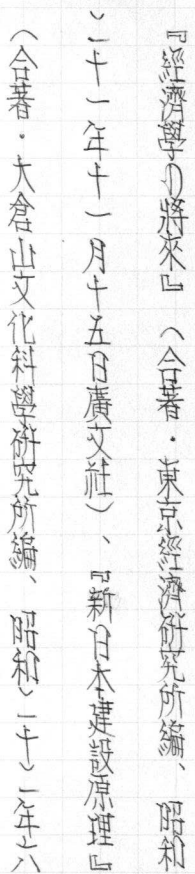 『經濟學の將來』（合著・東京經濟研究所編、昭和
二十一年十一月十五日廣文社）、『新日本建設原理』
（合著・大倉山文化科學研究所編、昭和二十二年六